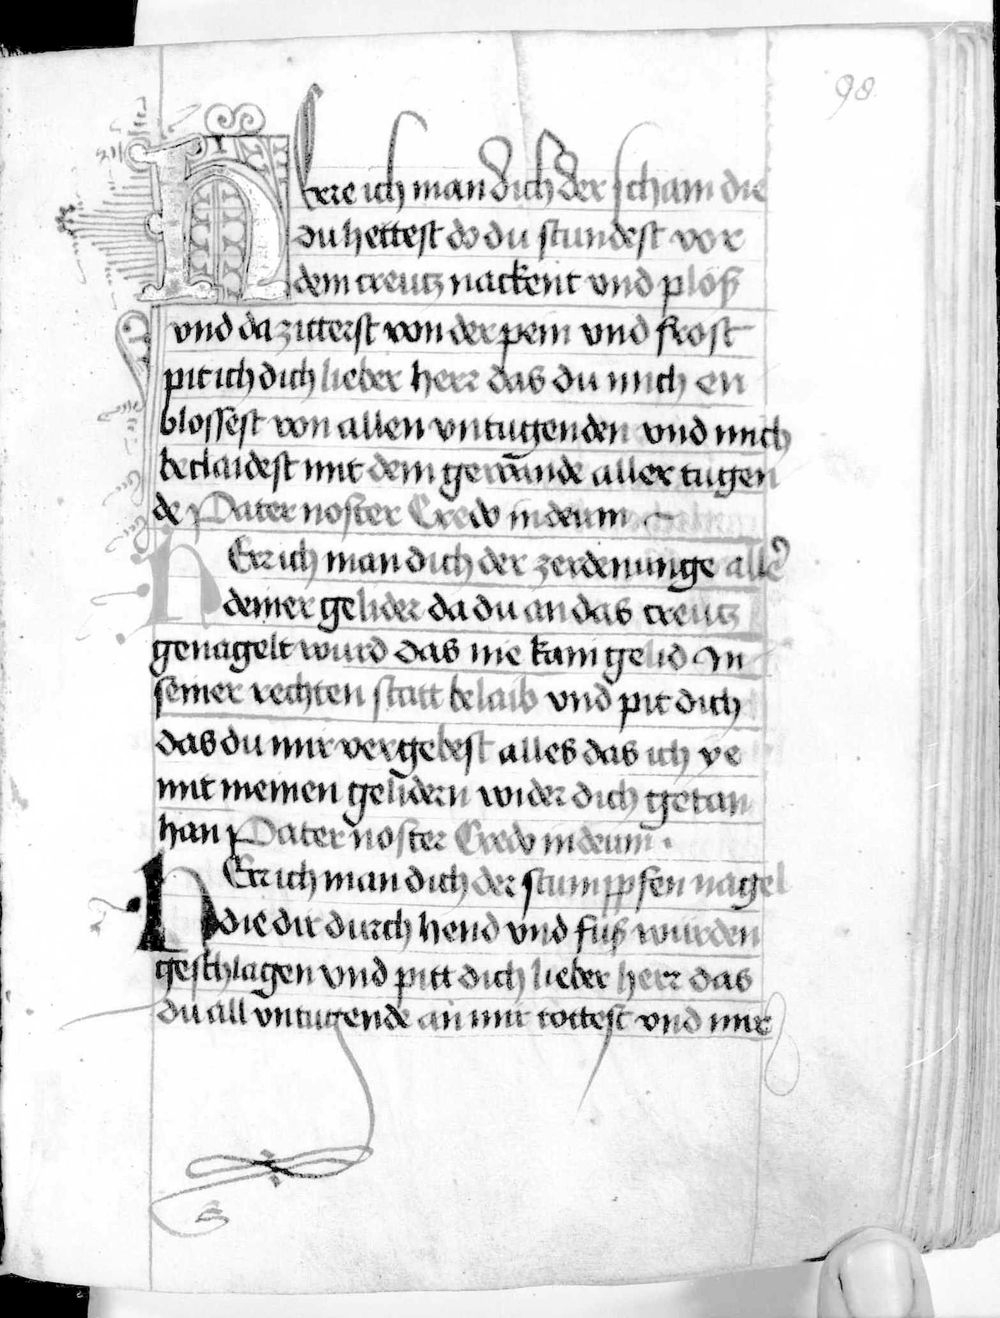 98
Herre ich man dich der scham die
du hettest do du stundest vor
dem creutz nackent vnd ploß
vnd da zitterst von der pein vnd frost
pit ich dich lieber herr das du mich en
blossest von allen vntugenden vnd mich
beclaidest mit dem gewande aller tugen
de Pater noster Credo in deum
HErr ich man dich der zerdenunge aller
deiner gelider da du an das creutz
genagelt wurd das nie kain gelid In
seiner rechten statt belaib vnd pit dich
das du mir vergebest alles das ich ye
mit meinen gelidern wider dich getan
han Pater noster Credo in deum
HErr ich man dich der stumpfen nagel
die dir durch hend vnd fuß wurden
geschlagen vnd pitt dich lieber herr das
du all vntugende an mir tottest vnd mir